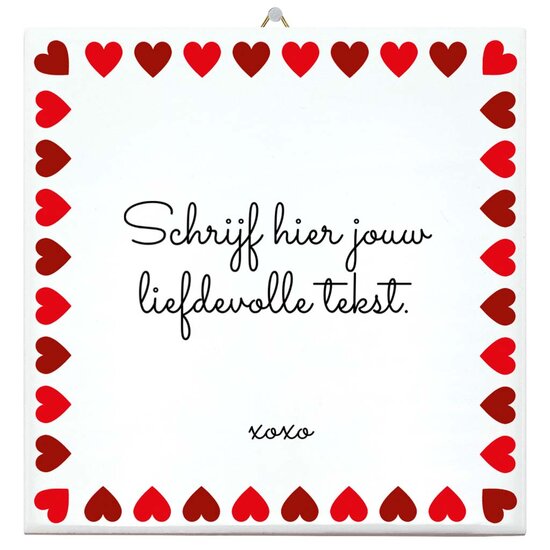 Schrijf hier jouw
liefdevolle tekst.
xoxo